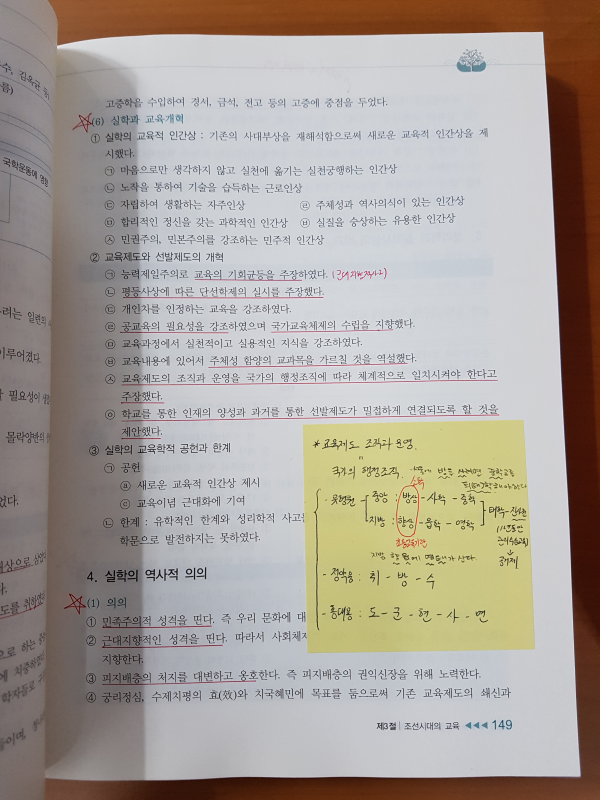 수, 김옥균 등
름)
국학운동에 영향
려는 일반의
이루어졌다.
할 필요성이
몰락양반의
었다.
대상으로
도를 취하였
으로 하는
에 치중하였
학자들로
고증학을 수입하여 경서, 금석, 전고 등의 고증에 중점을 두었다.
(6) 실학과 교육개혁
① 실학의 교육적 인간상 : 기존의 사대부상을 재해석함으로써 새로운 교육적 인간상을 제
시했다.
㉠ 마음으로만 생각하지 않고 실천에 옮기는 실천궁행하는 인간상
㉡ 노작을 통하여 기술을 습득하는 근로인상
㉢ 자립하여 생활하는 자주인상 ㉣ 주체성과 역사의식이 있는 인간상
㉤ 합리적인 정신을 갖는 과학적인 인간상 ㉥ 실질을 숭상하는 유용한 인간상
㉦ 민권주의, 민본주의를 강조하는 민주적 인간상
② 교육제도와 선발제도의 개혁
㉠ 능력제일주의로 교육의 기회균등을 주장하였다.
㉡ 평등사상에 따른 단선학제의 실시를 주장했다.
㉢ 개인차를 인정하는 교육을 강조하였다.
㉣ 공교육의 필요성을 강조하였으며 국가교육체제의 수립을 지향했다.
㉤ 교육과정에서 실천적이고 실용적인 지식을 강조하였다.
㉥ 교육내용에 있어서 주체성 함양의 교과목을 가르칠 것을 역설했다.
㉦ 교육제도의 조직과 운영을 국가의 행정조직에 따라 체계적으로 일치시켜야 한다고
주장했다.
㉧ 학교를 통한 인재의 양성과 과거를 통한 선발제도가 밀접하게 연결되도록 할 것을
제안했다.
③ 실학의 교육학적 공헌과 한계
㉠ 공헌
ⓐ 새로운 교육적 인간상 제시
ⓒ 교육이념 근대화에 기여
㉡ 한계 : 유학적인 한계와 성리학적 사고
학문으로 발전하지는 못하였다.
*교육제도 조직과 운영
국가의 행정조직
유형원 - 중앙 : 방상 - 사학 - 중학
지방 : 향상 - 읍학 - 영학
태학 - 진사원
- 정약용 : 취 - 방 - 수
- 홍대용 : 도 - 군 - 현 - 사 - 면
4. 실학의 역사적 의의
(1) 의의
① 민족주의적 성격을 띤다. 즉 우리 문화에 대
② 근대지향적인 성격을 띤다. 따라서 사회체제
지향한다.
③ 피지배층의 처지를 대변하고 옹호한다. 즉 피지배층의 권익신장을 위해 노력한다.
④ 궁리정심, 수제치평의 효(效)와 치국혜민에 목표를 둠으로써 기존 교육제도의 쇄신과
제3절 | 조선시대의 교육 ◀◀◀ 149